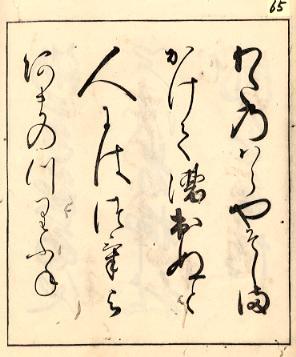 65
わたのハらやそしま
かけて漕出ぬと
人にはつけよ
あまのつりふね